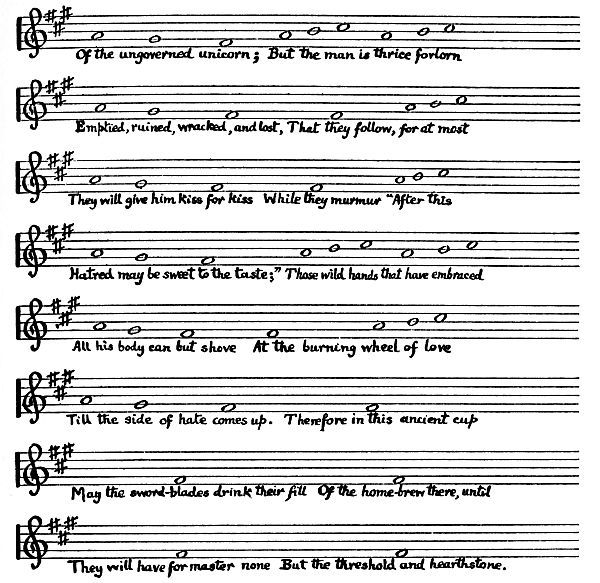 Of the ungoverned unicorn; But the man is thrice forlorn
Emptied, ruined, wracked, and lost, That they follow, for at most
They will give him kiss for kiss While they murmur "After this
Hatred may be sweet to the taste;" Those wild hands that have embraced
All his body can but shove At the burning wheel of love
Till the side of hate comes up. Therefore in this ancient cup
May the sword-blades drink their fill Of the home-brew there, until
They will have for master none But the threshold and hearthstone.